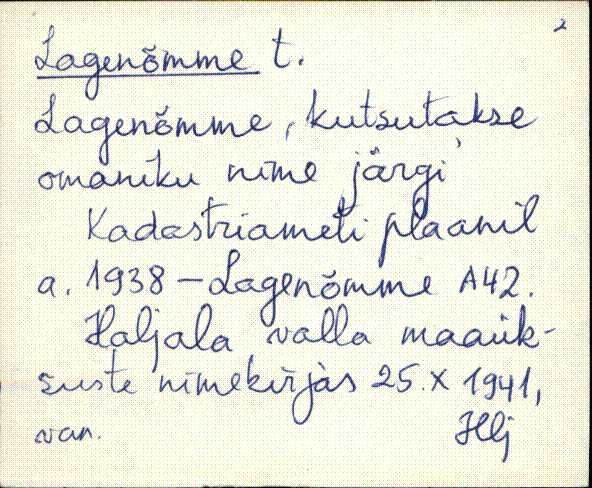 2
Lagenõmme t.
Lagenõmme, kutsutakse
omaniku nime järgi
Kadastriameti plaanil
a. 1938 – Lagenõmme A42.
Haljala valla maaük-
suste nimekirjas 25.X 1941,
van. Hlj